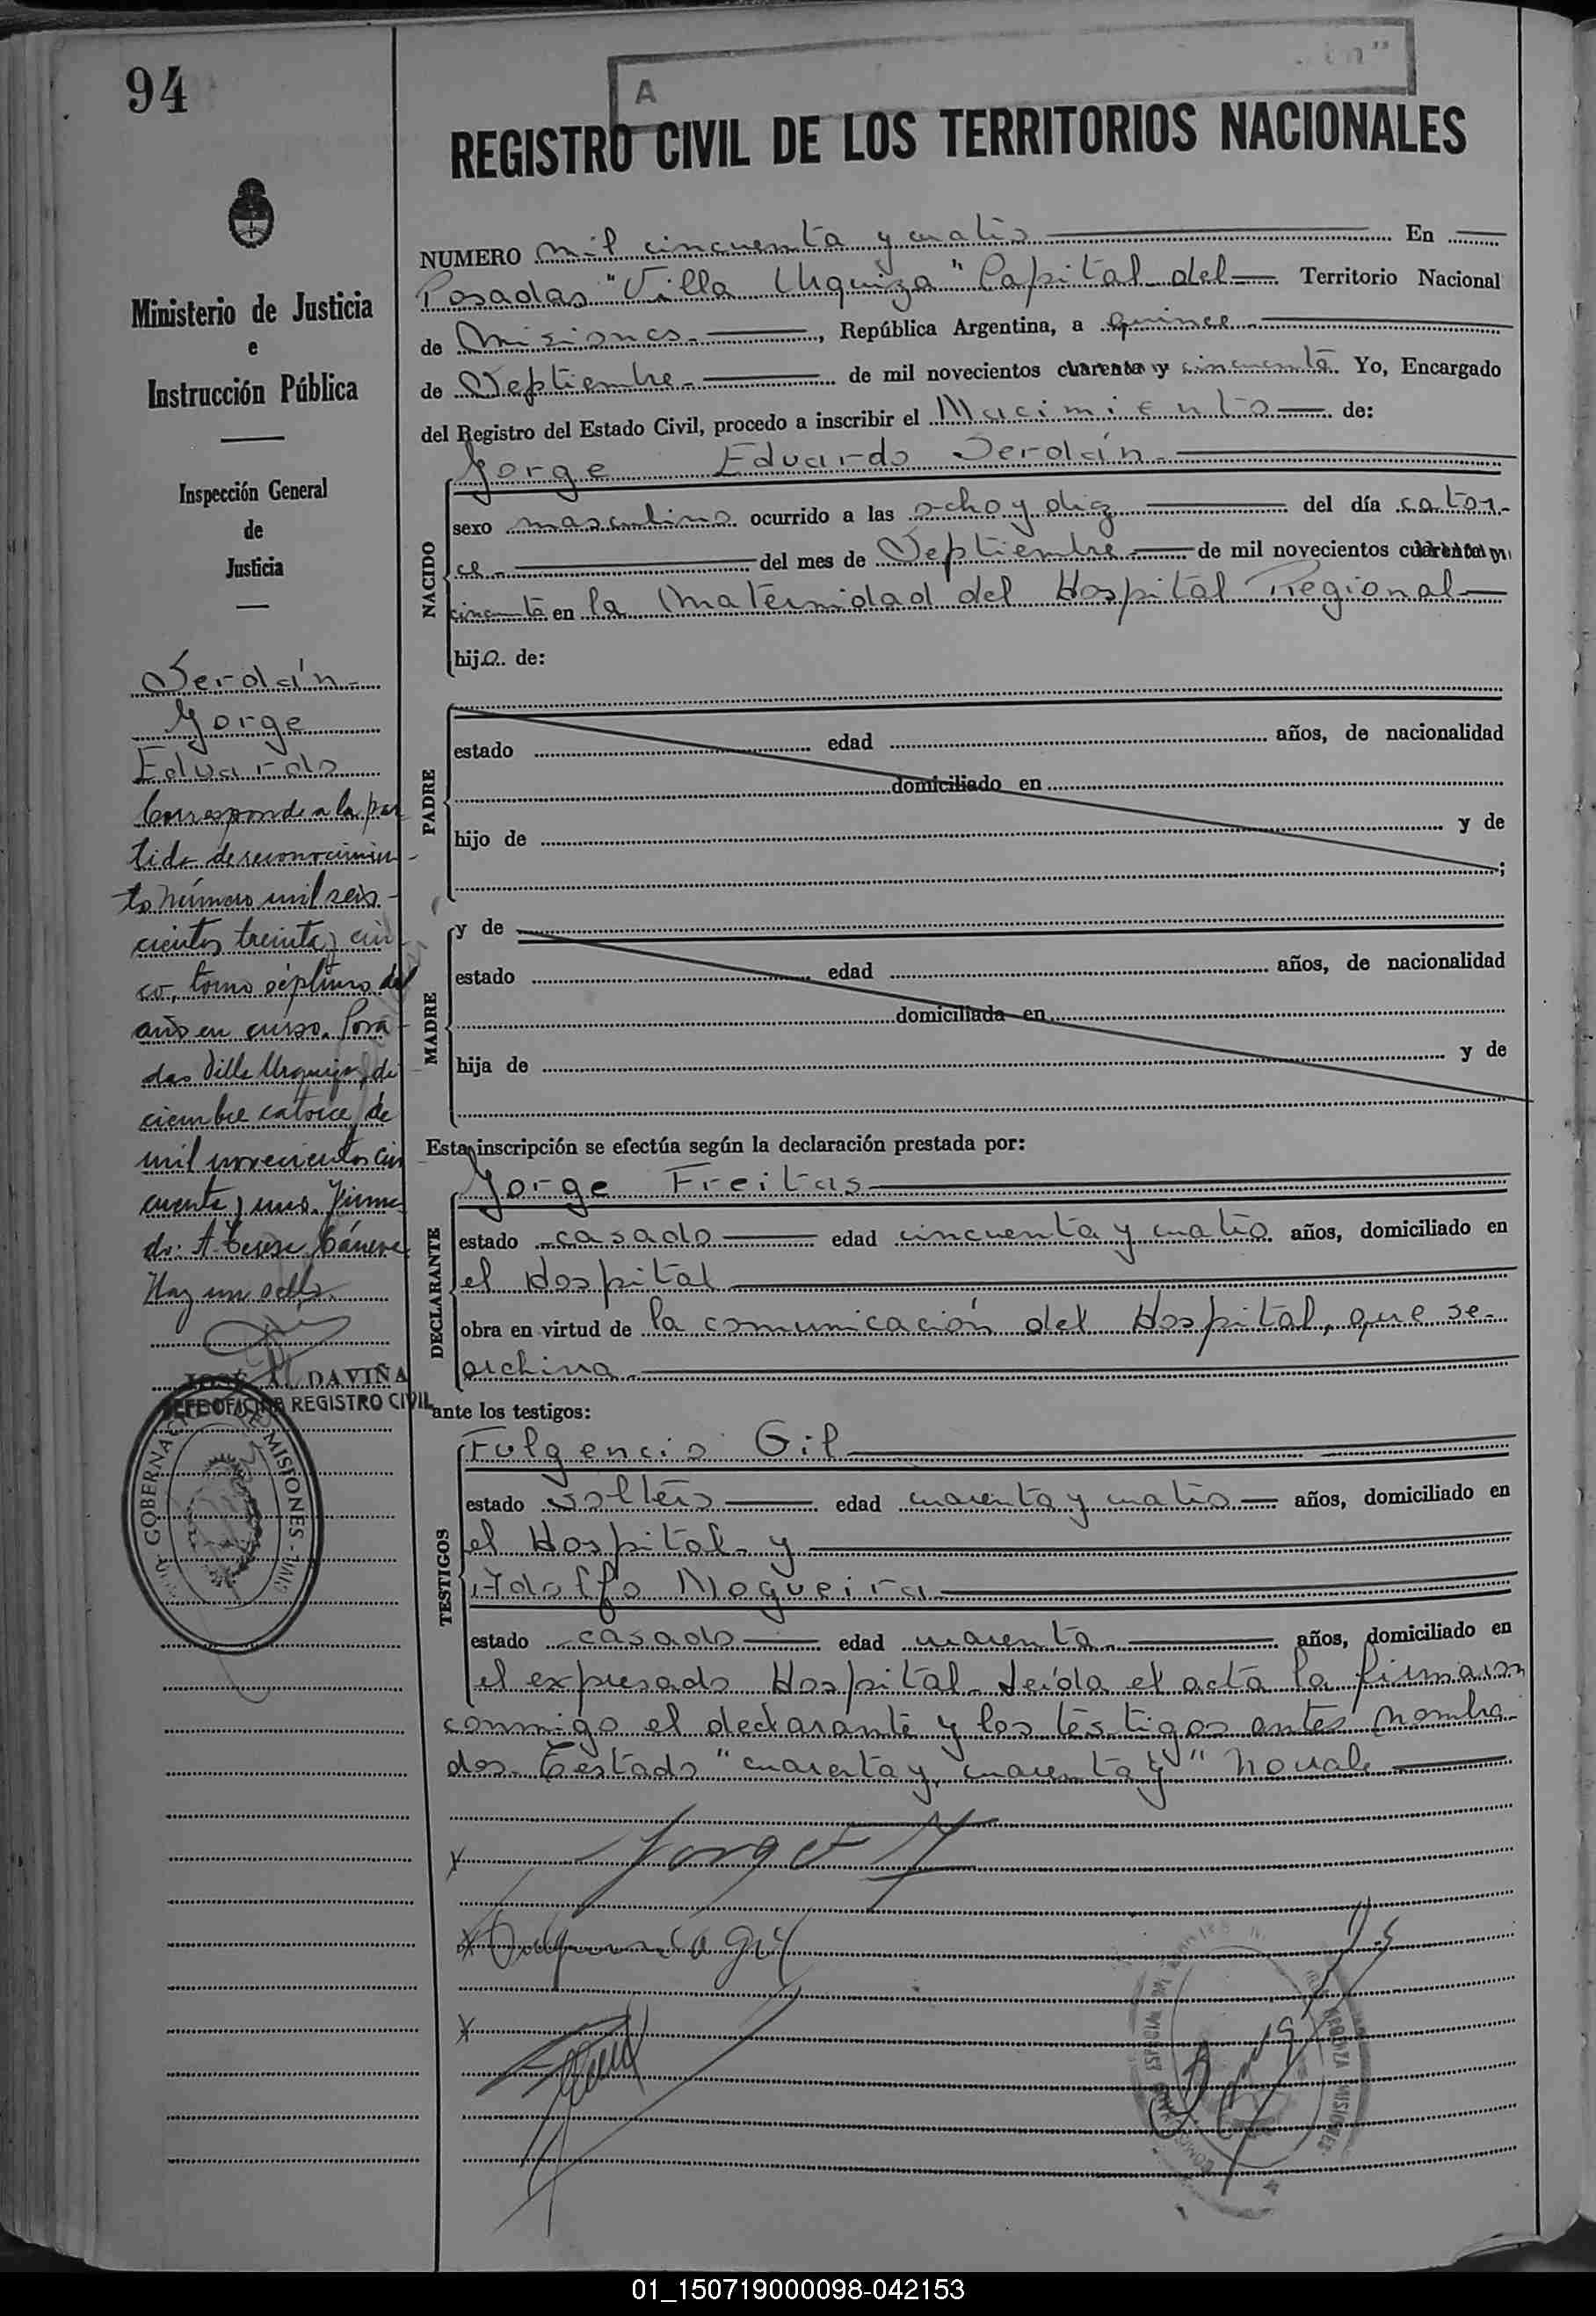 94
A
REGISTRO CIVIL DE LOS TERRITORIOS NACIONALES
Ministerio de Justicia
e
Instrucción Pública
Inspección General
de
Justicia
Serdán
Jorge
Eduardo
Corresponde a la par
tida de reconocimien
to número mil seis
cientos treinta y cin
co, tomo séptimo del
año en curso. Posa
das Villa Urquiza, di
ciembre catorce de
mil novecientos cin
cuenta y uno. Firma
do: A.
Hay un sello.
JOSÉ DAVIÑA
JEFE OFICINA REGISTRO CIVIL
GOBERNACION DE MISIONES
NUMERO mil cincuenta y cuatro En
Posadas "Villa Urquiza" Capital del Territorio Nacional
de Misiones.-, República Argentina, a quince.-
de Septiembre.- de mil novecientos cuarenta y cincuenta Yo, Encargado
del Registro del Estado Civil, procedo a inscribir el Nacimiento de:
Jorge Eduardo Serdán.-
NACIDO
sexo masculino ocurrido a las ocho y diez del día cator-
ce.- del mes de Septiembre de mil novecientos cuarenta y
cincuenta en la Maternidad del Hospital Regional
hijo de:
PADRE
estado edad años, de nacionalidad
domiciliado en
hijo de y de
;
MADRE
y de
estado edad años, de nacionalidad
domiciliada en
hija de y de
Esta inscripción se efectúa según la declaración prestada por:
DECLARANTE
Jorge Freitas
estado casado edad cincuenta y cuatro años, domiciliado en
el Hospital
obra en virtud de la comunicación del Hospital, que se
archiva.-
ante los testigos:
TESTIGOS
Fulgencio Gil
estado soltero edad cuarenta y cuatro años, domiciliado en
el Hospital y
Adolfo Nogueira
estado casado edad cuarenta.- años, domiciliado en
el expresado Hospital. Leída el acta la firmaron
conmigo el declarante y los testigos antes nombra-
dos. Testado "cuarenta y, cuarenta y" No vale
x Jorge F
x Fulgencio Gil
x
01_150719000098-042153